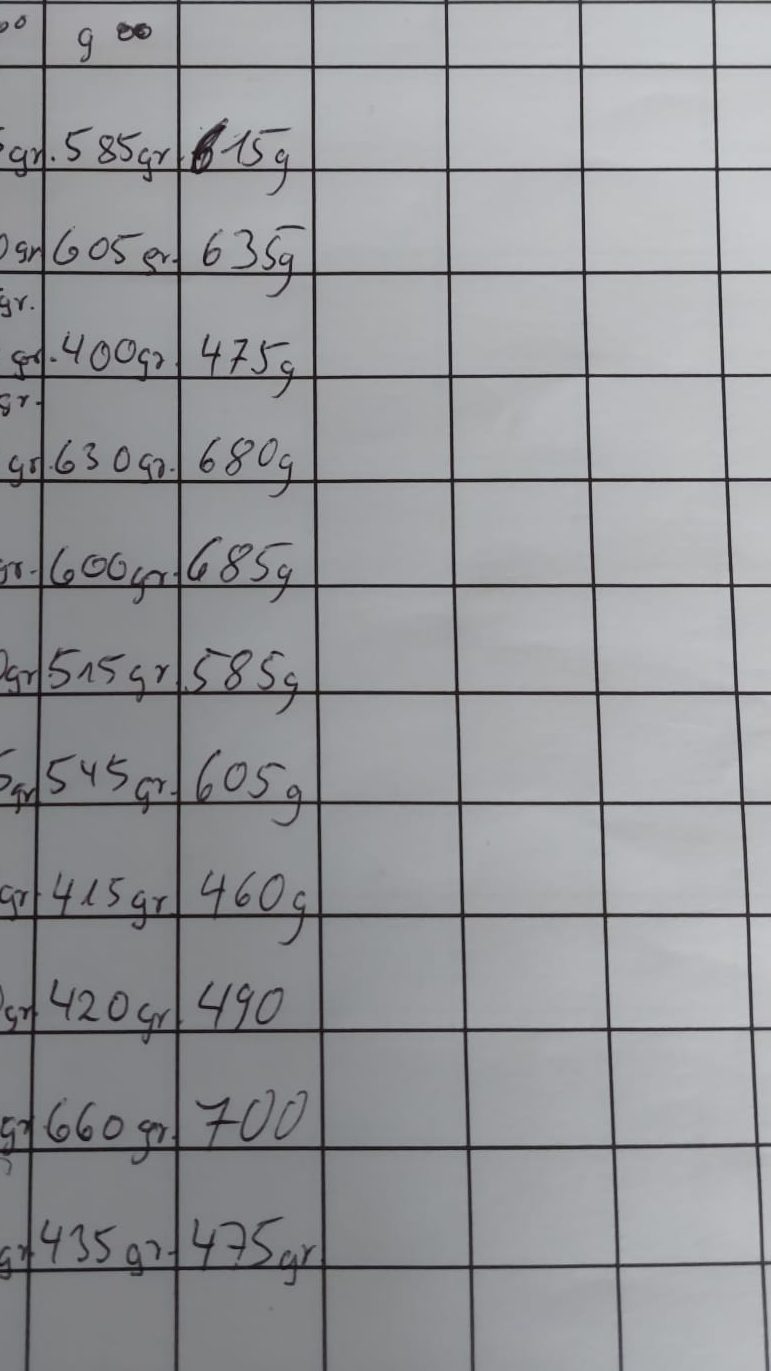 oo g oo
gr. 585gr. 615g
0gr 605gr. 635g
gr.
gr. 400gr. 475g
gr.
gr. 630gr. 680g
gr. 600gr. 685g
0gr 515gr. 585g
5gr 545gr. 605g
gr. 415gr 460g
gr 420gr. 490
gr 660gr. 700
gr 435gr. 475gr